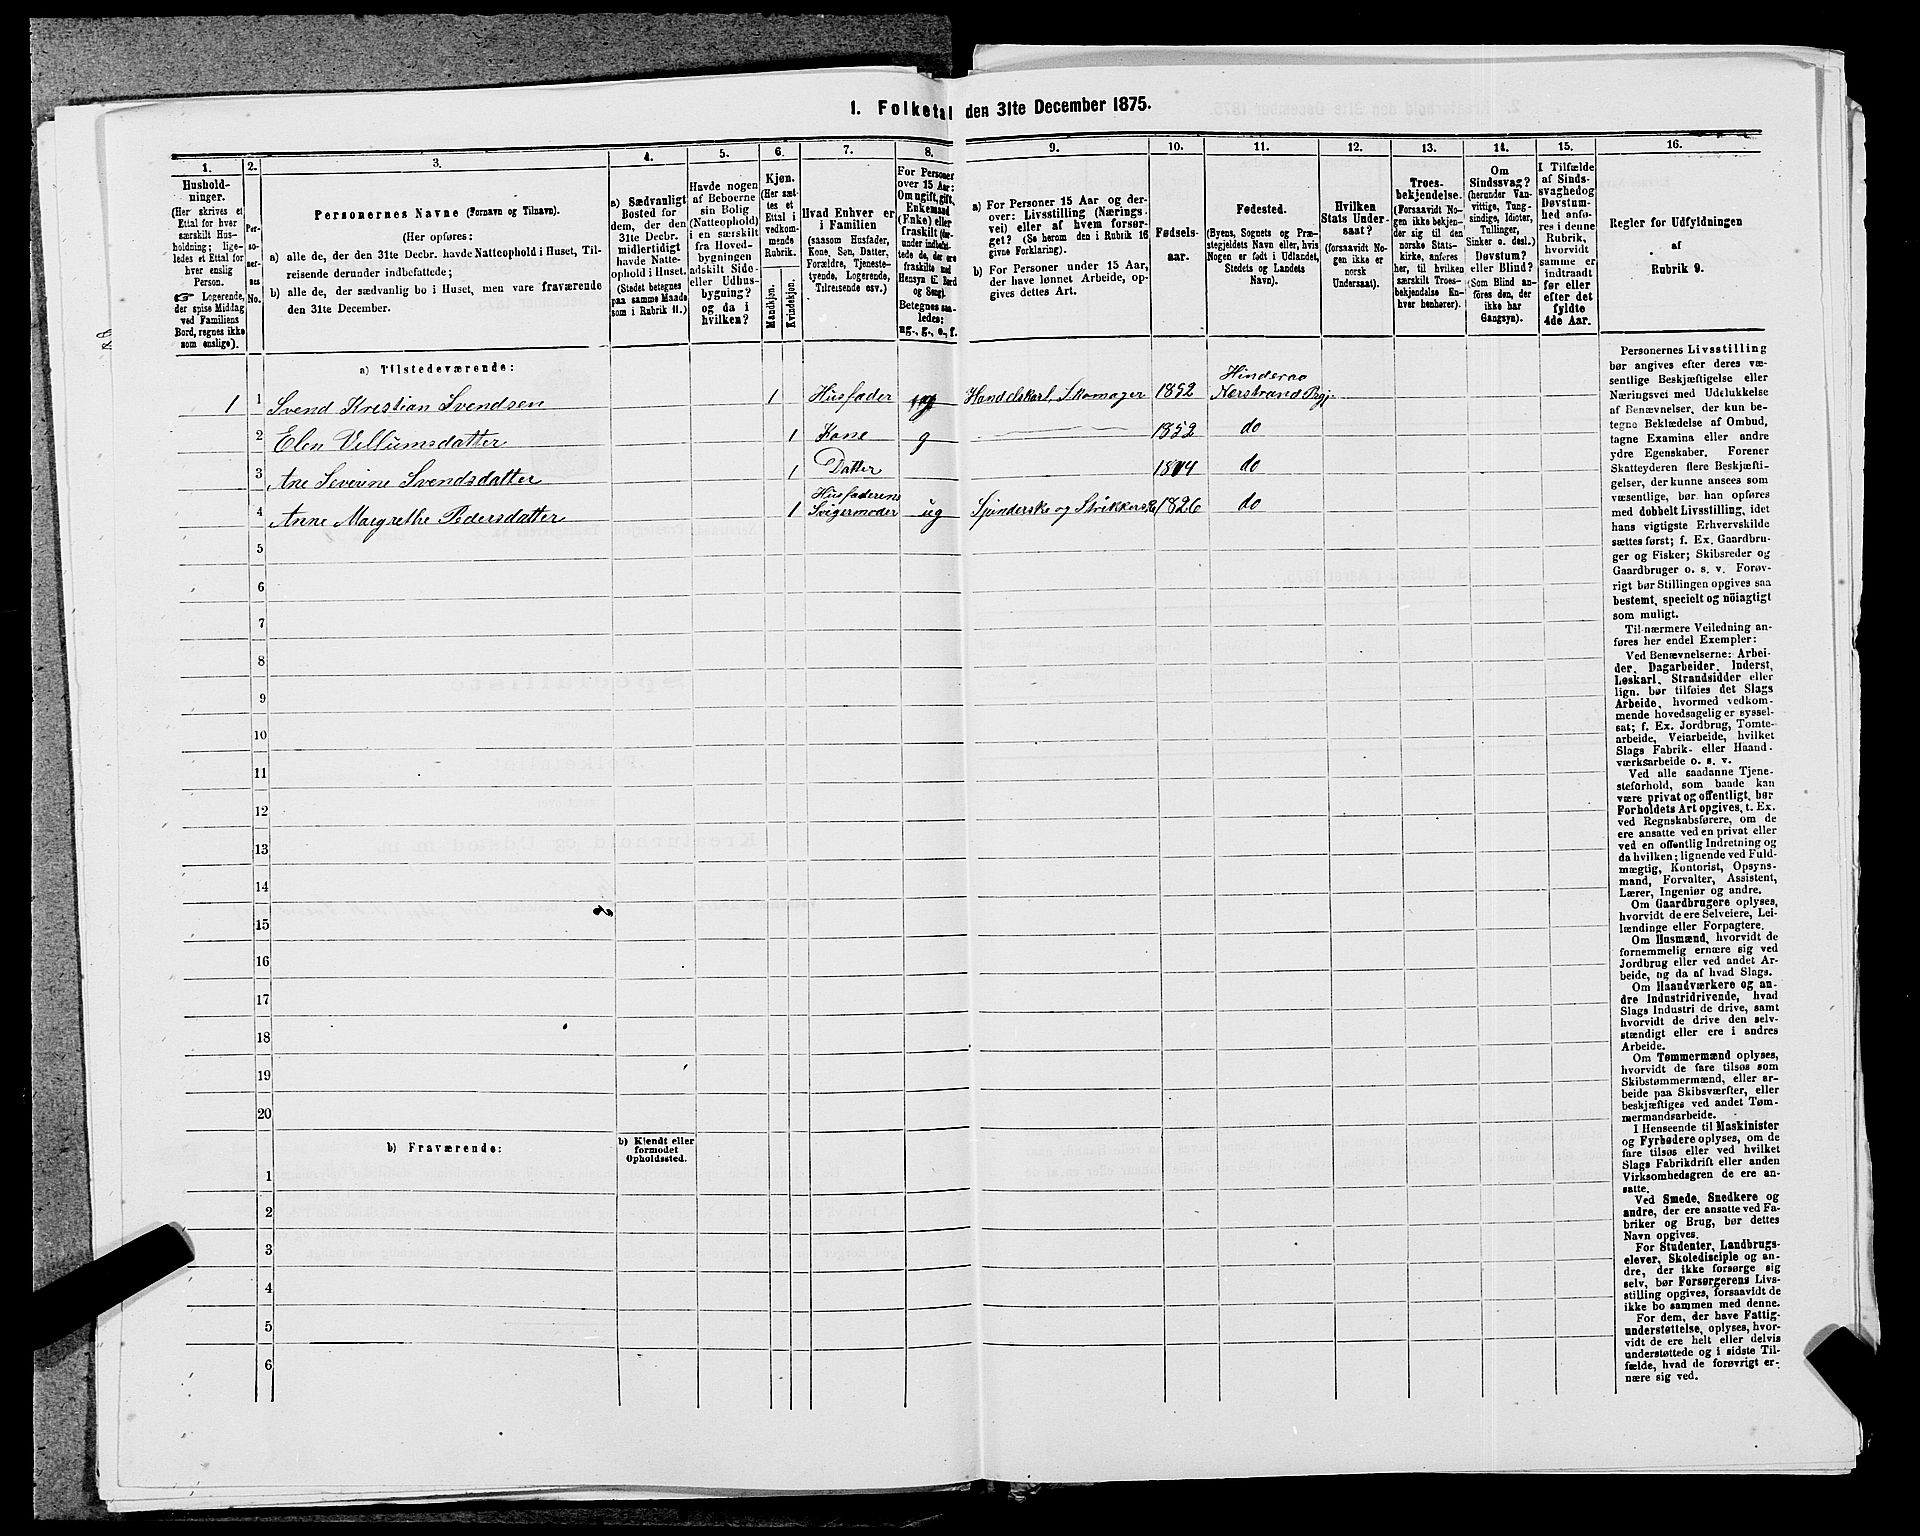 1. Folketal den 31te December 1875.
1.
2.
3.
4.
5.
6.
7.
8.
9.
10.
11.
12.
13.
14.
15.
16.
Hushold-
ninger.
(Her skrives et
Ettal for hver
særskilt Hus-
holdning; lige-
ledes et Ettal for
hver enslig
Person.
☞ Logerende,
der spise Middag
ved Familiens
Bord, regnes ikke
som enslige).
Per-
so-
ner-
nes
No.
Personernes Navne (Fornavn og Tilnavn).
(Her opføres:
a) alle de, der den 31te Decbr. havde Natteophold i Huset, Til-
reisende derunder indbefattede;
b) alle de, der sædvanlig bo i Huset, men vare fraværende
den 31te December.
a) Sædvanligt
Bosted for
dem, der den
31te Decbr.
midlertidigt
havde Natte-
ophold i Huset.
(Stedet betegnes
paa samme Maade
som i Rubrik 11.)
Havde nogen
af Beboerne
sin Bolig
(Natteophold)
i en særskilt
fra Hoved-
bygningen
adskilt Side-
eller Udhus-
bygning?
og da i
hvilken?
Kjøn.
(Her sæt-
tes et
Ettal i
vedkom-
mende
Rubrik.
Mandkjøn.
Kvindekjøn.
Hvad Enhver er
i Familien
(saasom Husfader,
Kone, Søn, Datter,
Forældre, Tjeneste-
tyende, Logerende,
Tilreisende osv.)
For Personer
over 15 Aar:
Om ugift, gift,
Enkemand
(Enke) eller
fraskilt (for-
under indbefat-
tede de, der ere
fraskilte med
Hensyn til Bord
og Seng).
Betegnes saa-
ledes:
ug., g., e., f.
a) For Personer 15 Aar og der-
over: Livsstilling (Nærings-
vei) eller af hvem forsør-
get? (Se herom den i Rubrik 16
givne Forklaring).
b) For Personer under 15 Aar,
der have lønnet Arbeide, op-
gives dettes Art.
Fødsels-
aar.
Fødested.
(Byens, Sognets og Præ-
stegjeldets Navn eller, hvis
Nogen er født i Udlandet,
Stedets og Landets
Navn).
Hvilken
Stats Under-
saat?
(forsaavidt No-
gen ikke er
norsk
Undersaat).
Troes-
bekjendelse.
(Forsaavidt No-
gen ikke bekjen-
der sig til den
norske Stats-
kirke, anføres
her, til hvilken
særskilt Troes-
bekjendelse En-
hver henhører).
Om
Sindssvag?
(herunder Van-
vittige, Tung-
sindige, Idioter,
Tullinger,
Sinker o. desl.)
Døvstum?
eller Blind?
(Som Blind an-
føres den, der
ikke har
Gangsyn).
I Tilfælde
af Sinds-
svaghed og
Døvstum-
hed anfø-
res i denne
Rubrik,
hvorvidt
samme er
indtraadt
før eller
efter det
fyldte
4de Aar.
Regler for Udfyldningen
af
Rubrik 9.
a) Tilstedeværende:
1 1 Svend Kristian Svendsen 1 Husfader g Handelskarl, Skomager 1852 Hinderaa
Nærstrand Prgj.
2 Elen Villumsdatter 1 Kone g 1852 do
3 Ane Severine Svendsdatter 1 Datter 1874 do
4 Anne Margrethe Pedersdatter 1 Husfaderens
Svigermoder ug Spinderske og Strikkerske 1826 do
5
6
7
8
9
10
11
12
13
14
15
16
17
18
19
20
b) Fraværende:
b) Kjendt eller
formodet
Opholdssted.
1
2
3
4
5
6
Personernes Livsstilling
bør angives efter deres væ-
sentlige Beskjæftigelse eller
Næringsvei med Udelukkelse
af Benævnelser, der kun be-
tegne Beklædelse af Ombud,
tagne Examina eller andre
ydre Egenskaber. Forener
Skatteyderen flere Beskjæfti-
gelser, der kunne ansees som
væsentlige, bør han opføres
med dobbelt Livsstilling, idet
hans vigtigste Erhvervskilde
sættes først; f. Ex. Gaardbru-
ger og Fisker; Skibsreder og
Gaardbruger o. s. v. Forøv-
rigt bør Stillingen opgives saa
bestemt, specielt og nöiagtigt
som muligt.
Til nærmere Veiledning an-
føres her endel Exempler:
Ved Benævnelserne: Arbei-
der, Dagarbeider, Inderst,
Løskarl, Strandsidder eller
lign. bør tilføies det Slags
Arbeide, hvormed vedkom-
mende hovedsagelig er syssel-
sat; f. Ex. Jordbrug, Tomte-
arbeide, Veiarbeide, hvilket
Slags Fabrik- eller Haand-
værksarbeide o. s. v.
Ved alle saadanne Tjene-
steforhold, som baade kan
være privat og offentligt, bør
Forholdets Art opgives, t. Ex.
ved Regnskabsførere, om de
ere ansatte ved en privat eller
ved en offentlig Indretning og
da hvilken; lignende ved Fuld-
mægtig, Kontorist, Opsyns-
mand, Forvalter, Assistent,
Lærer, Ingeniør og andre.
Om Gaardbrugere oplyses,
hvorvidt de ere Selveiere, Lei-
lændinge eller Forpagtere.
Om Husmænd, hvorvidt de
fornemmelig ernære sig ved
Jordbrug eller ved andet Ar-
beide, og da af hvad Slags.
Om Haandværkere og an-
dre Industridrivende, hvad
Slags Industri de drive, samt
hvorvidt de drive den selv-
stændigt eller ere i andres
Arbeide.
Om Tømmermænd oplyses,
hvorvidt de fare tilsøs som
Skibstømmermænd, eller ar-
beide paa Skibsværfter, eller
beskjæftiges ved andet Tøm-
mermandsarbeide.
I Henseende til Maskinister
og Fyrbødere oplyses, om de
fare tilsøs eller ved hvilket
Slags Fabrikdrift eller anden
Virksomhedsgren de ere an-
satte.
Ved Smede, Snedkere og
andre, der ere ansatte ved Fa-
briker og Brug, bør dettes
Navn opgives.
For Studenter, Landbrugs-
elever, Skoledisciple og an-
dre, der ikke forsørge sig
selv, bør Forsørgerens Livs-
stilling opgives, forsaavidt de
ikke bo sammen med denne.
For dem, der have Fattig-
understøttelse, oplyses, hvor-
vidt de ere helt eller delvis
understøttede og i sidste Til-
fælde, hvad de forøvrigt er-
nære sig ved.